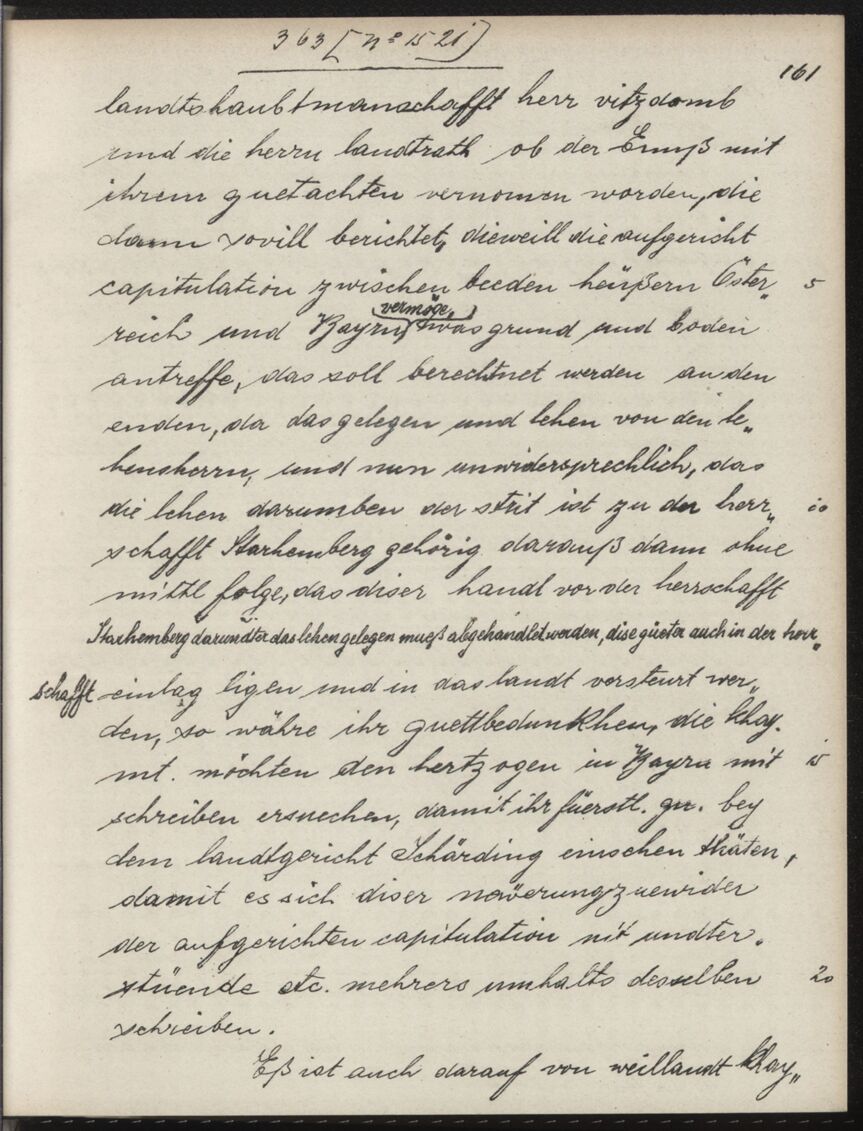 363 [nº 1521]
161
landtshaubtmanschafft herr vitzdomb
unnd die herrn landtrath ob der Ennß mit
ihrem guetachten vernomen worden, die
dann sovill berichtet, dieweill die aufgericht
capitulation zwischen beeden heüßern Öster„ 5
reich und Bayrn, vermöge, was grund und boden
antreffe, das soll berechtnet werden an den
enden, da das gelegen und lehen von den le„
hensherrn, und nun unwidersprechlich, das
die lehen darumben der strit ist zu der herr„ 10
schafft Starhemberg gehörig darauß dann ohne
mittl folge, das diser handl vor der herrschafft
Starhemberg darundter das lehen gelegen mueß abgehandlet werden, dise güeter auch in der herr„
schafft einlag ligen und in das landt versteurt wer„
den, so währe ihr guettbedunkhen, die khay.
mt. möchten den hertzogen in Bayrn mit 15
schreiben ersuechen, damit ihr füerstl. gn. bey
dem landtgericht Schärding einsehen thäten,
damit es sich diser neüerung zuewider
der aufgerichten capitulation nit undter„
stüende etc. mehrers innhalts desselben 20
schreiben.
Eß ist auch darauf von weillandt khay„